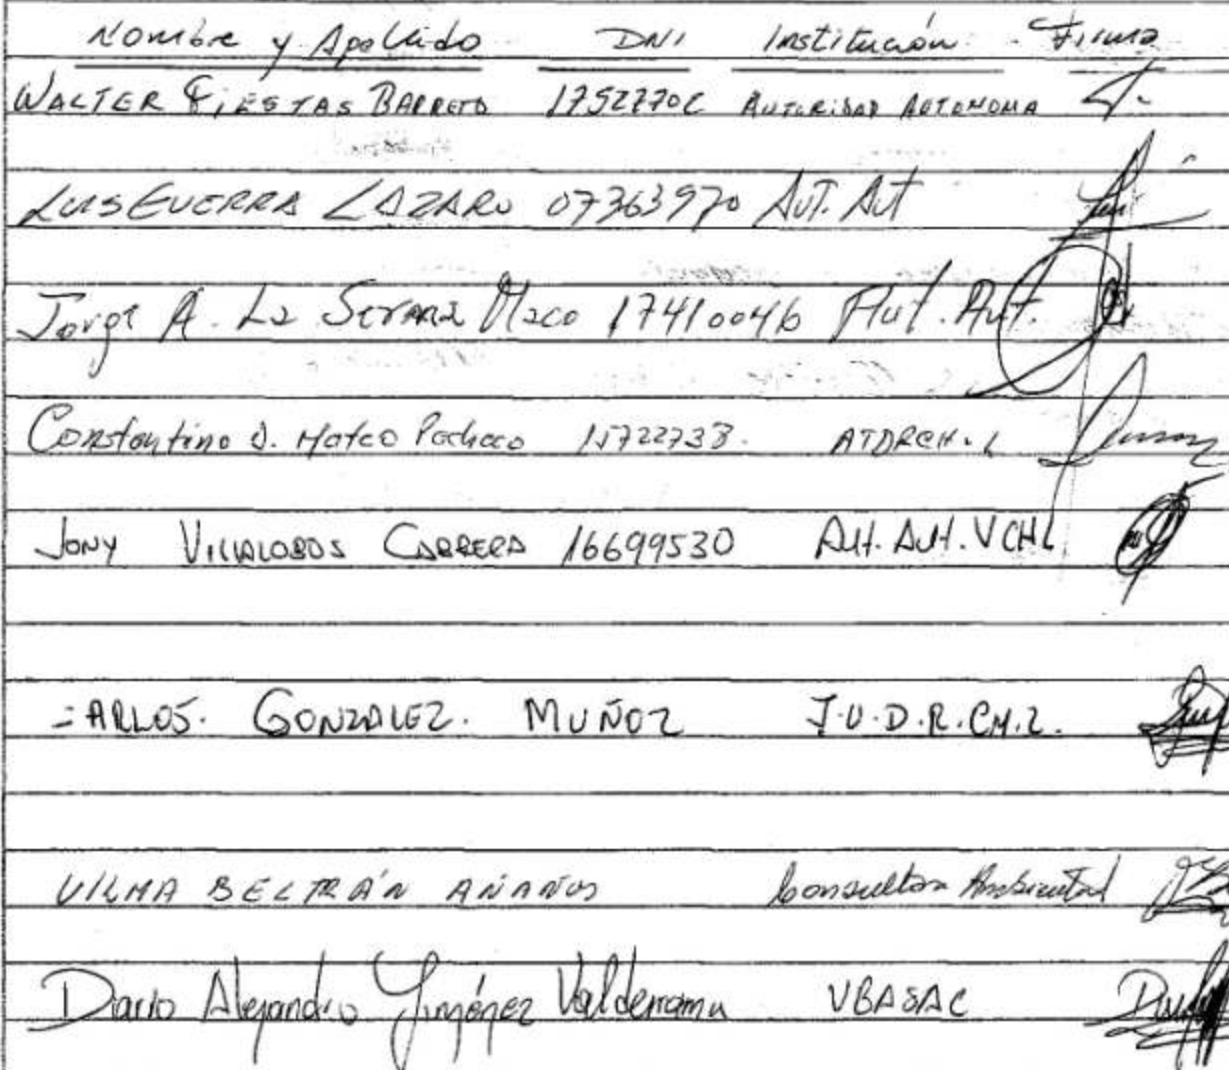 Nombre y Apellido DNI Institución Firma
WALTER FIESTAS BARRETO 17527702 AUTORIDAD AUTONOMA
LUIS GUERRA LAZARO 07363970 AUT. AUT
Jorge A. La Serna Maco 17410046 Aut. Aut.
Constantino D. Mateo Pacheco 15722733. ATDRCH-L
JONY VILLALOBOS CABRERA 16699530 AUT. AUT. VCHL
CARLOS. GONZALEZ. MUÑOZ J.U.D.R.CH.L.
VILMA BELTRÁN AÑAÑOS Consultora Ambiental
Dario Alejandro Jiménez Valderrama VBASAC